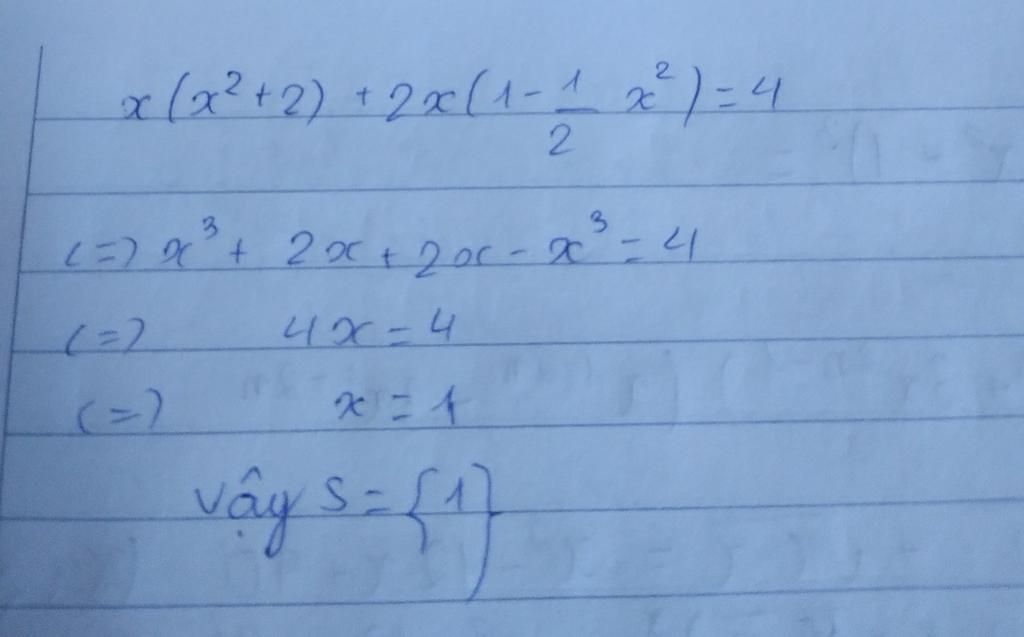 x(x²+2) + 2x(1 - 1/2 x²) = 4
(=) x³ + 2x + 2x - x³ = 4
(=) 4x = 4
(=) x = 1
Vậy S = {1}